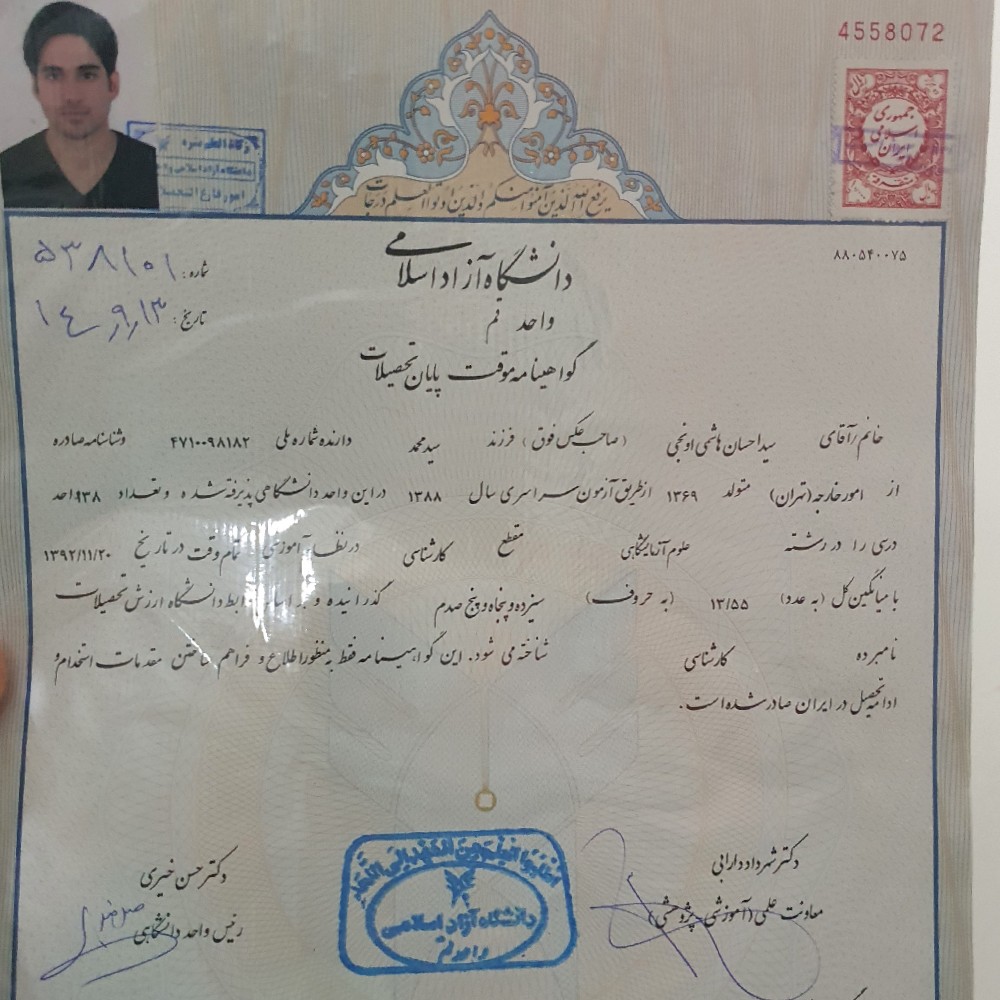 4558072
جمهوری
اسلامی
ایران
یرفع الله الذین آمنوا منکم والذین اوتوا العلم درجات
امور فارغ التحصیلان
۸۸۰۵۴۰۰۷۵
دانشگاه آزاد اسلامی
شماره: ۵۳۸۱۰۱
واحد قم
تاریخ:
گواهینامه موقت پایان تحصیلات
خانم/آقای سیداحسان هاشمی اونجی (صاحب عکس فوق) فرزند سیدمحمد دارنده شماره ملی ۴۷۱۰۰۹۸۱۸۲ و شناسنامه صادره
از امورخارجه(تهران) متولد ۱۳۶۹ ازطریق آزمون سراسری سال ۱۳۸۸ دراین واحد دانشگاهی پذیرفته شده و تعداد ۱۳۸ واحد
درسی را در رشته علوم آزمایشگاهی مقطع کارشناسی درنظام آموزشی تمام وقت در تاریخ ۱۳۹۲/۱۱/۲۰
با میانگین کل (به عدد) ۱۳/۵۵ (به حروف) سیزده و پنجاه و پنج صدم گذرانیده و براساس ضوابط دانشگاه ارزش تحصیلات
نامبرده کارشناسی شناخته می شود. این گواهینامه فقط به منظور اطلاع و فراهم ساختن مقدمات استخدام و
ادامه تحصیل در ایران صادر شده است.
دکتر شهرداد دارابی
معاونت علمی(آموزشی-پژوهشی)
دکتر حسن خیری
رئیس واحد دانشگاهی
دانشگاه آزاد اسلامی
واحد قم